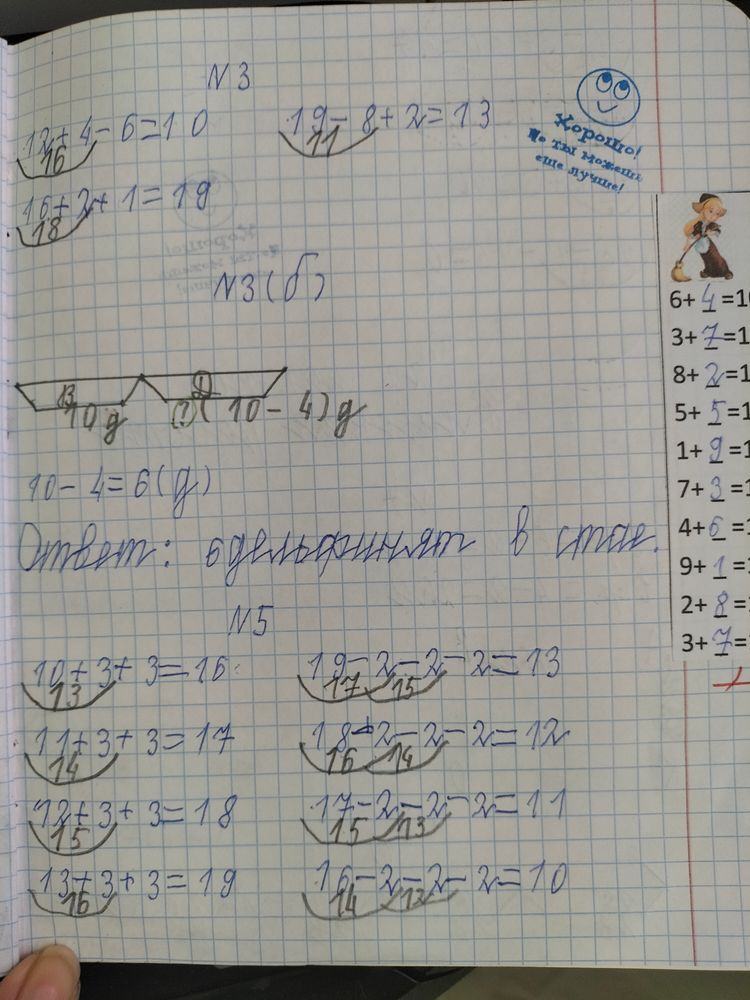 N 3
12+4-6=10
16
19-8+2=13
11
Хорошо!
Но ты можешь
еще лучше!
16+2+1=19
18
N3(б)
В
10 д
Д
(?)(10-4) д
10-4=6(д)
Ответ: 6дельфинят в стае.
N5
10+3+3=16
13
19-2-2-2=13
17 15
11+3+3=17
14
18-2-2-2=12
16 14
12+3+3=18
15
17-2-2-2=11
15 13
13+3+3=19
16
16-2-2-2=10
14 12
6+4=10
3+7=1
8+2=1
5+5=1
1+9=1
7+3=1
4+6=1
9+1=1
2+8=1
3+7=